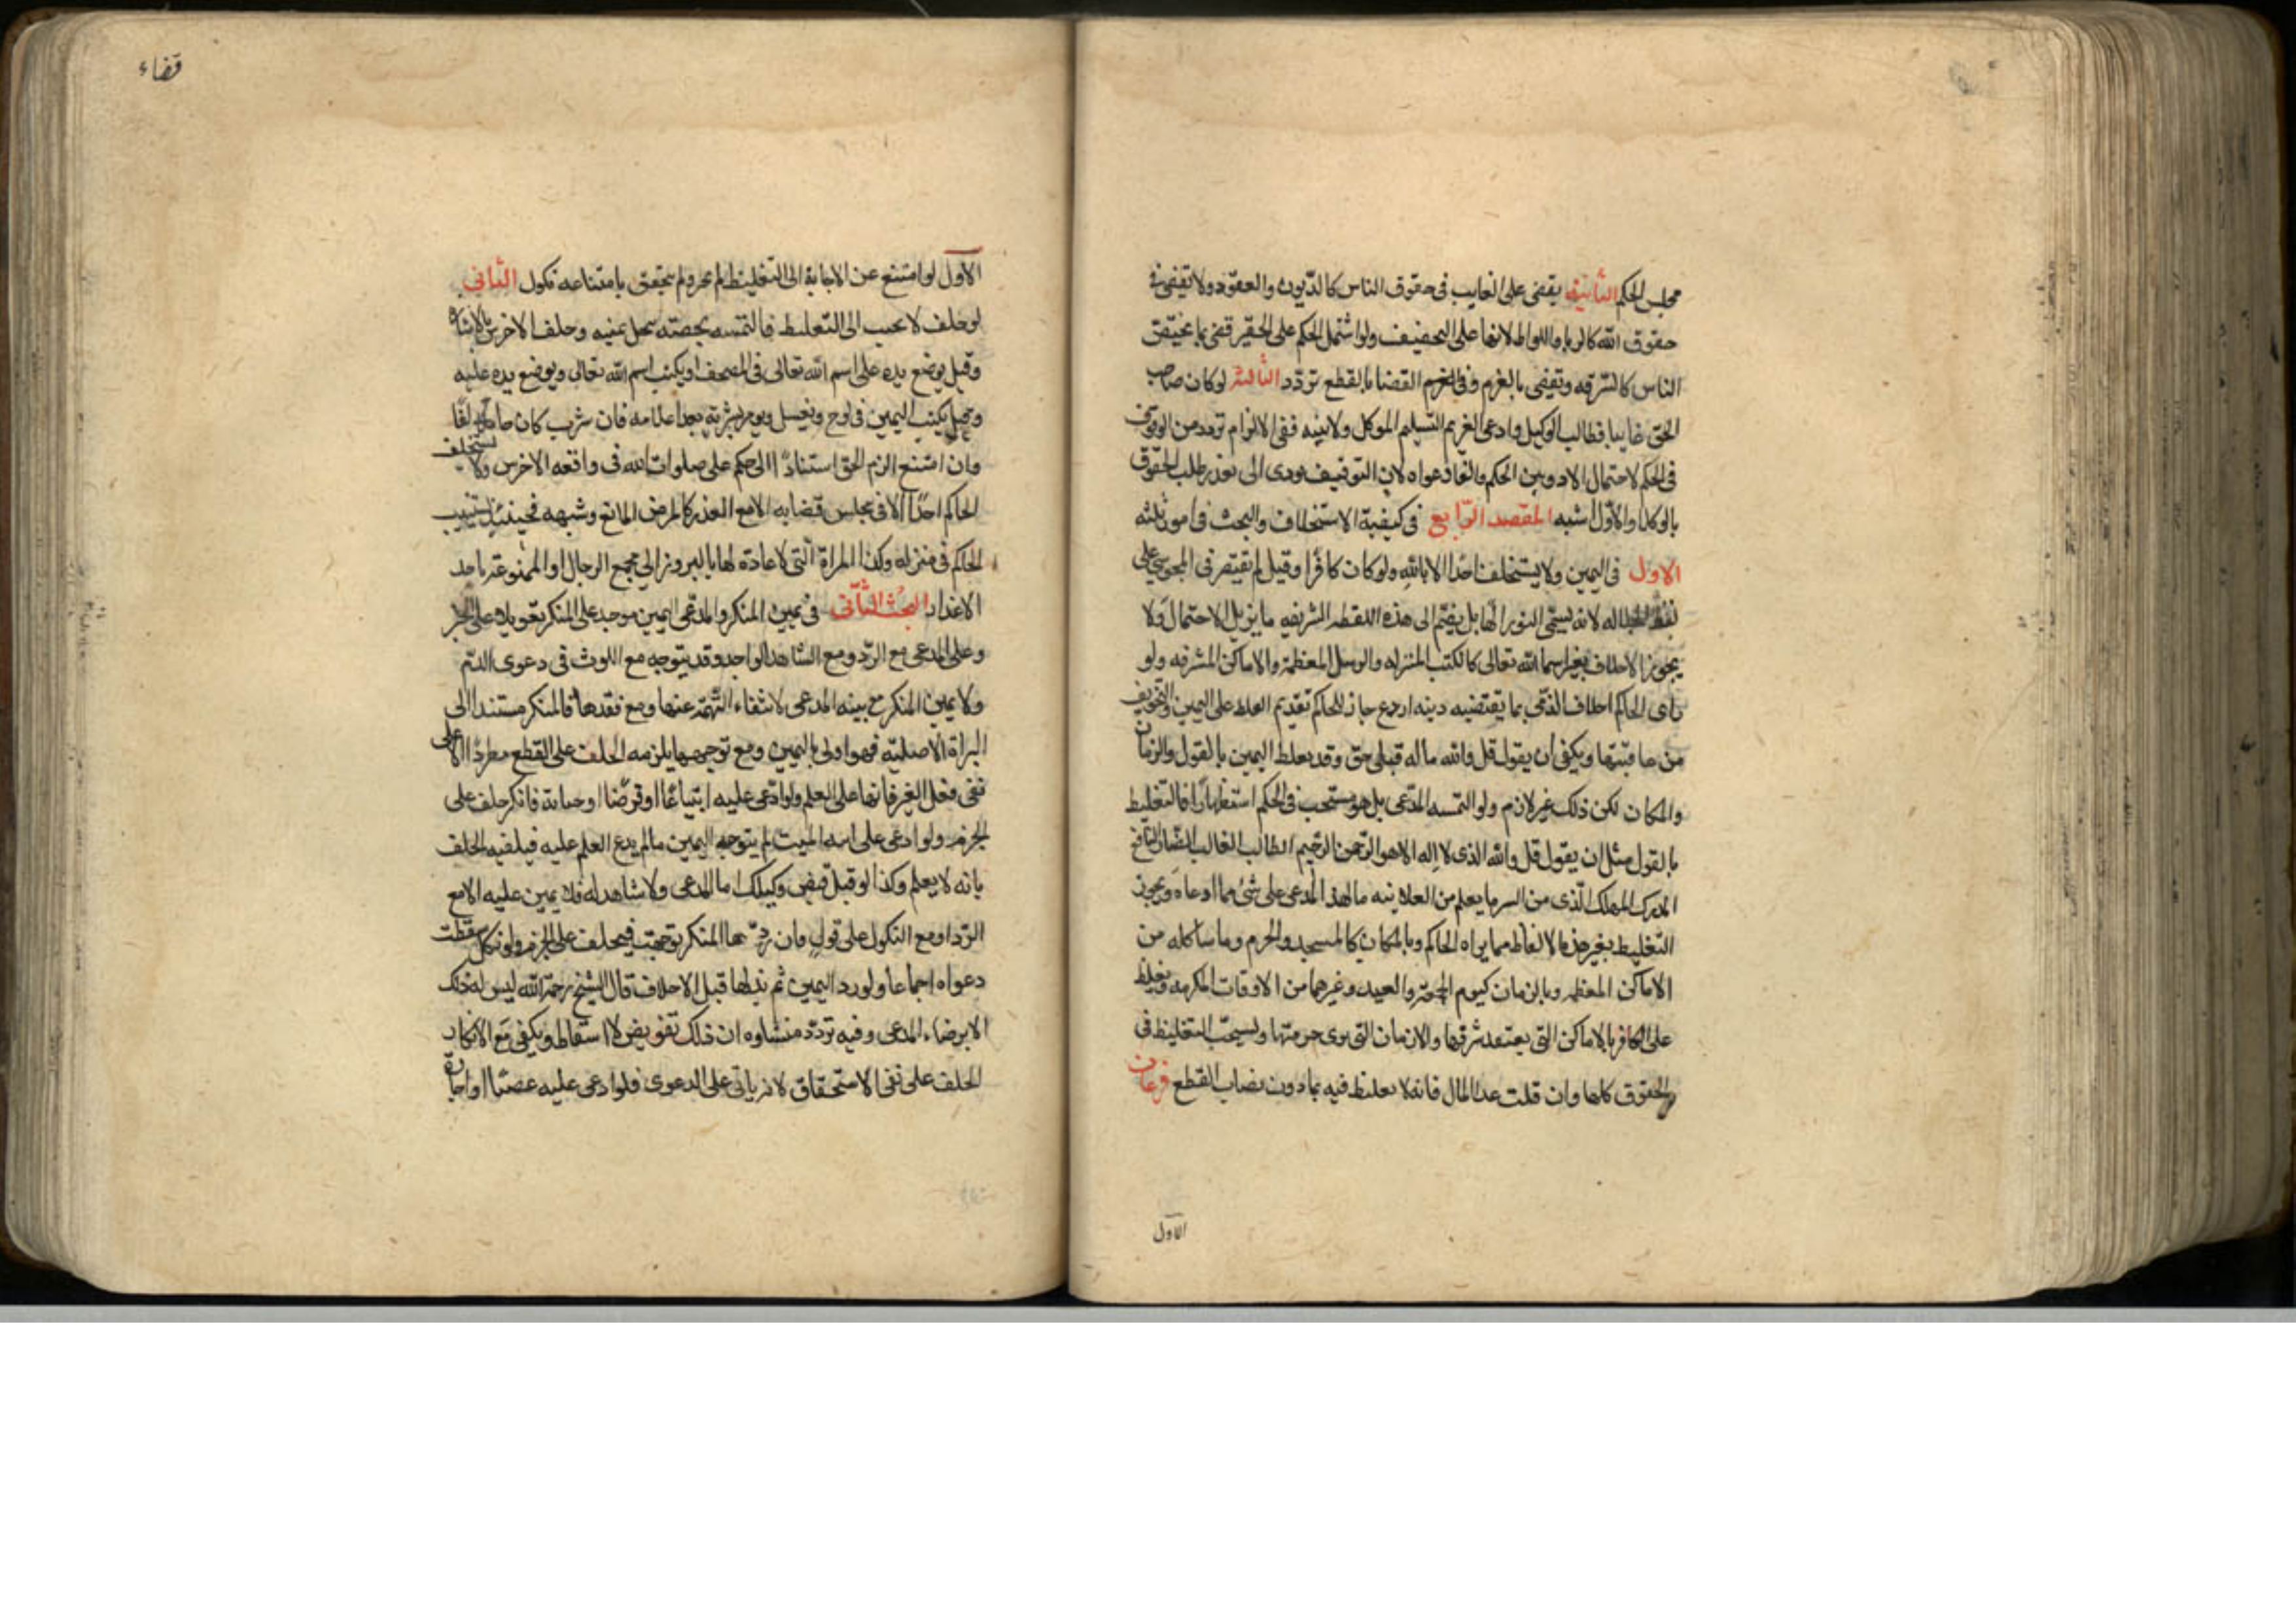 مجلس الحكم الثانية يقضى على الغايب فى حقوق الناس كالديون والعقود ولا يقضى فى
حقوق الله كالزنا واللواط لانها على التخفيف ولو اشتمل الحكم على الحقين قضى بما يختص
الناس كالسرقه ويقضى بالغرم وفى القضا بالقطع تردد الثالثة لو كان صاحب
الحق غايبا فطالب الوكيل وادعى الغريم التسليم الموكل ولا بينه ففى الالزام تردد من الوقوف
فى الحكم لاحتمال الاداء وبين الحكم والغا دعواه لان التوقيف يودى الى تعذر طلب الحقوق
بالوكلا والاول اشبه المقصد الرابع فى كيفية الاستحلاف والبحث فى امور ثلثه
الاول فى اليمين ولا يستحلف احدا الا بالله ولو كان كافرا وقيل لم يقتصر فى المجوسى على
لفظ الجلاله لانه يسمى النور الها بل يضم الى هذه اللفظه الشريفه ما يزيل الاحتمال ولا
يجوز الاحلاف بغير اسما الله تعالى كالكتب المنزله والرسل المعظمة والاماكن المشرفه ولو
راى الحاكم احلاف الذمى بما يقتضيه دينه اردع جاز للحاكم تقديم العظه على اليمين والتخويف
من عاقبتها ويكفى ان يقول قل والله ما له قبلى حق وقد يغلظ اليمين بالقول والزمان
والمكان لكن ذلك غير لازم ولو التمسه المدعى بل هو مستحب فى الحكم استظهارا فالتغليظ
بالقول مثل ان يقول قل والله الذى لا اله الا هو الرحمن الرحيم الطالب الغالب الضار النافع
المدرك المهلك الذى من السر ما يعلم من العلانيه ما لهذا المدعى على شئ مما ادعاه ويجوز
التغليظ بغير هذه الالفاظ مما يراه الحاكم وبالمكان كالمسجد والحرم وما شاكله من
الاماكن المعظمه وبالزمان كيوم الجمعه والعيد وغيرهما من الاوقات المكرمه ويغلظ
على الكافر بالاماكن التى يعتقد شرفها والازمان التى يرى حرمتها ويستحب التغليظ فى
الحقوق كلها وان قلت عدا المال فانه لا يغلظ فيه بما دون نصاب القطع فرعان
الاول
قضاء
الاول لو امتنع عن الاجابة الى التغليظ لم يجبر ولم يتحقق بامتناعه نكول الثانى
لو حلف لا يجيب الى التغليظ فالتمسه خصمه يحل يمينه وحلف الاخرس بالاشاره
وقيل يوضع يده على اسم الله تعالى فى المصحف او يكتب اسم الله تعالى ويوضع يده عليه
وقيل يكتب اليمين فى لوح ويغسل ويومر بشربه بعد اعلامه فان شرب كان حالفا
وان امتنع الزم الحق استنادا الى حكم على صلوات الله فى واقعه الاخرس ولا يستحلف
الحاكم احدا الا فى مجلس قضايه الا مع العذر كالمرض المانع وشبهه فحينئذ يستنيب
الحاكم فى منزله وكذا المراة التى لا عادة لها بالبروز الى مجمع الرجال او الممنوعة باحد
الاعذار البحث الثانى فى يمين المنكر والمدعى اليمين يتوجه على المنكر تعويلا على الخبر
وعلى المدعى مع الرد ومع الشاهد الواحد وقد يتوجه مع اللوث فى دعوى الدم
ولا يمين المنكر مع بينه المدعى لانتفاء التهمة عنها ومع فقدها فالمنكر مستند الى
البراة الاصلية فهو اولى باليمين ومع توجهها يلزمه الحلف على القطع مطردا الا على
نفى فعل الغير فانها على العلم ولو ادعى عليه ابتياعا او قرضا او جناية فانكر حلف على
الجزم ولو ادعى على ابيه الميت لم يتوجه اليمين ما لم يدع العلم عليه فيلفيه الحلف
بانه لا يعلم وكذا لو قيل قبض وكيلك اما المدعى ولا شاهد له فلا يمين عليه الا مع
الرد او مع النكول على قول فان ردها المنكر توجهت فيحلف على الجزم ولو نكل سقطت
دعواه اجماعا ولو رد اليمين ثم بذلها قبل الاحلاف قال الشيخ رحمة الله ليس له ذلك
الا برضاء المدعى وفيه تردد منشاوه ان ذلك تفويض لا اسقاط ويكفى مع الانكار
الحلف على نفى الاستحقاق لانه ياتى على الدعوى فلو ادعى عليه غصبا او اجارة